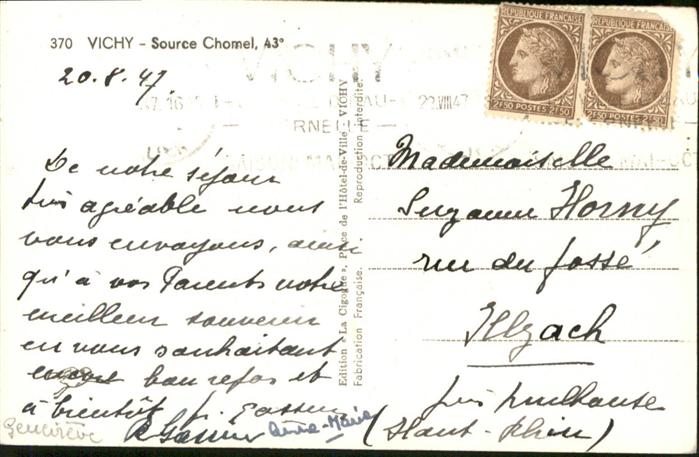 370 VICHY - Source Chomel, 43°
20.8.47
RÉPUBLIQUE FRANÇAISE
2F50 POSTES 2F50
RÉPUBLIQUE FRANÇAISE
2F50 POSTES 2F50
VICHY
20 VIII 47
De notre séjour
très agréable nous
vous envoyons, ainsi
qu'à vos Parents notre
meilleur souvenir
en vous souhaitant
bon repos et
à bientôt
Geneviève
Anne-Marie
Edition « La Cigogne », Place de l'Hôtel-de-Ville, VICHY
Fabrication Française. Reproduction Interdite.
Mademoiselle
Suzanne Horny
rue du fossé
Illzach
près Mulhouse
(Haut-Rhin)